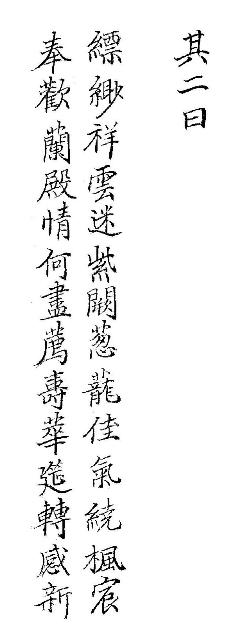 其二曰
縹緲祥雲迷紫闕葱蘢佳氣繞楓宸
奉歡蘭殿情何盡薦壽華筵轉感新